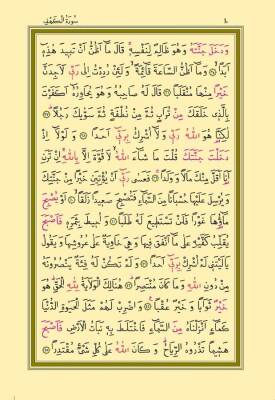 سُورَةُ الْكَهْفِ
وَدَخَلَ جَنَّتَهُ وَهُوَ ظَالِمٌ لِنَفْسِهِ قَالَ مَٓا اَظُنُّ اَنْ تَبِيدَ هٰذِهِٓ
اَبَدًا وَمَٓا اَظُنُّ السَّاعَةَ قَٓائِمَةً وَلَئِنْ رُدِدْتُ اِلٰى رَبِّي لَاَجِدَنَّ
خَيْرًا مِنْهَا مُنْقَلَبًا قَالَ لَهُ صَاحِبُهُ وَهُوَ يُحَاوِرُهُٓ اَكَفَرْتَ
بِالَّذِي خَلَقَكَ مِنْ تُرَابٍ ثُمَّ مِنْ نُطْفَةٍ ثُمَّ سَوّٰيكَ رَجُلًا
لٰكِنَّا هُوَ اللّٰهُ رَبِّي وَلَٓا اُشْرِكُ بِرَبِّٓي اَحَدًا وَلَوْلَٓا اِذْ
دَخَلْتَ جَنَّتَكَ قُلْتَ مَا شَٓاءَ اللّٰهُ لَا قُوَّةَ اِلَّا بِاللّٰهِ اِنْ تَرَنِ
اَنَا اَقَلَّ مِنْكَ مَالًا وَوَلَدًا فَعَسٰى رَبِّٓي اَنْ يُؤْتِيَنِ خَيْرًا مِنْ جَنَّتِكَ
وَيُرْسِلَ عَلَيْهَا حُسْبَانًا مِنَ السَّمَٓاءِ فَتُصْبِحَ صَعِيدًا زَلَقًا اَوْ يُصْبِحَ
مَٓاؤُهَا غَوْرًا فَلَنْ تَسْتَطِيعَ لَهُ طَلَبًا وَاُحِيطَ بِثَمَرِهِ فَاَصْبَحَ
يُقَلِّبُ كَفَّيْهِ عَلٰى مَٓا اَنْفَقَ فِيهَا وَهِيَ خَاوِيَةٌ عَلٰى عُرُوشِهَا وَيَقُولُ
يَا لَيْتَنِي لَمْ اُشْرِكْ بِرَبِّٓي اَحَدًا وَلَمْ تَكُنْ لَهُ فِئَةٌ يَنْصُرُونَهُ
مِنْ دُونِ اللّٰهِ وَمَا كَانَ مُنْتَصِرًا هُنَالِكَ الْوَلَايَةُ لِلّٰهِ الْحَقِّ هُوَ
خَيْرٌ ثَوَابًا وَخَيْرٌ عُقْبًا وَاضْرِبْ لَهُمْ مَثَلَ الْحَيٰوةِ الدُّنْيَا
كَمَٓاءٍ اَنْزَلْنَاهُ مِنَ السَّمَٓاءِ فَاخْتَلَطَ بِهِ نَبَاتُ الْاَرْضِ فَاَصْبَحَ
هَشِيمًا تَذْرُوهُ الرِّيَاحُ وَكَانَ اللّٰهُ عَلٰى كُلِّ شَيْءٍ مُقْتَدِرًا